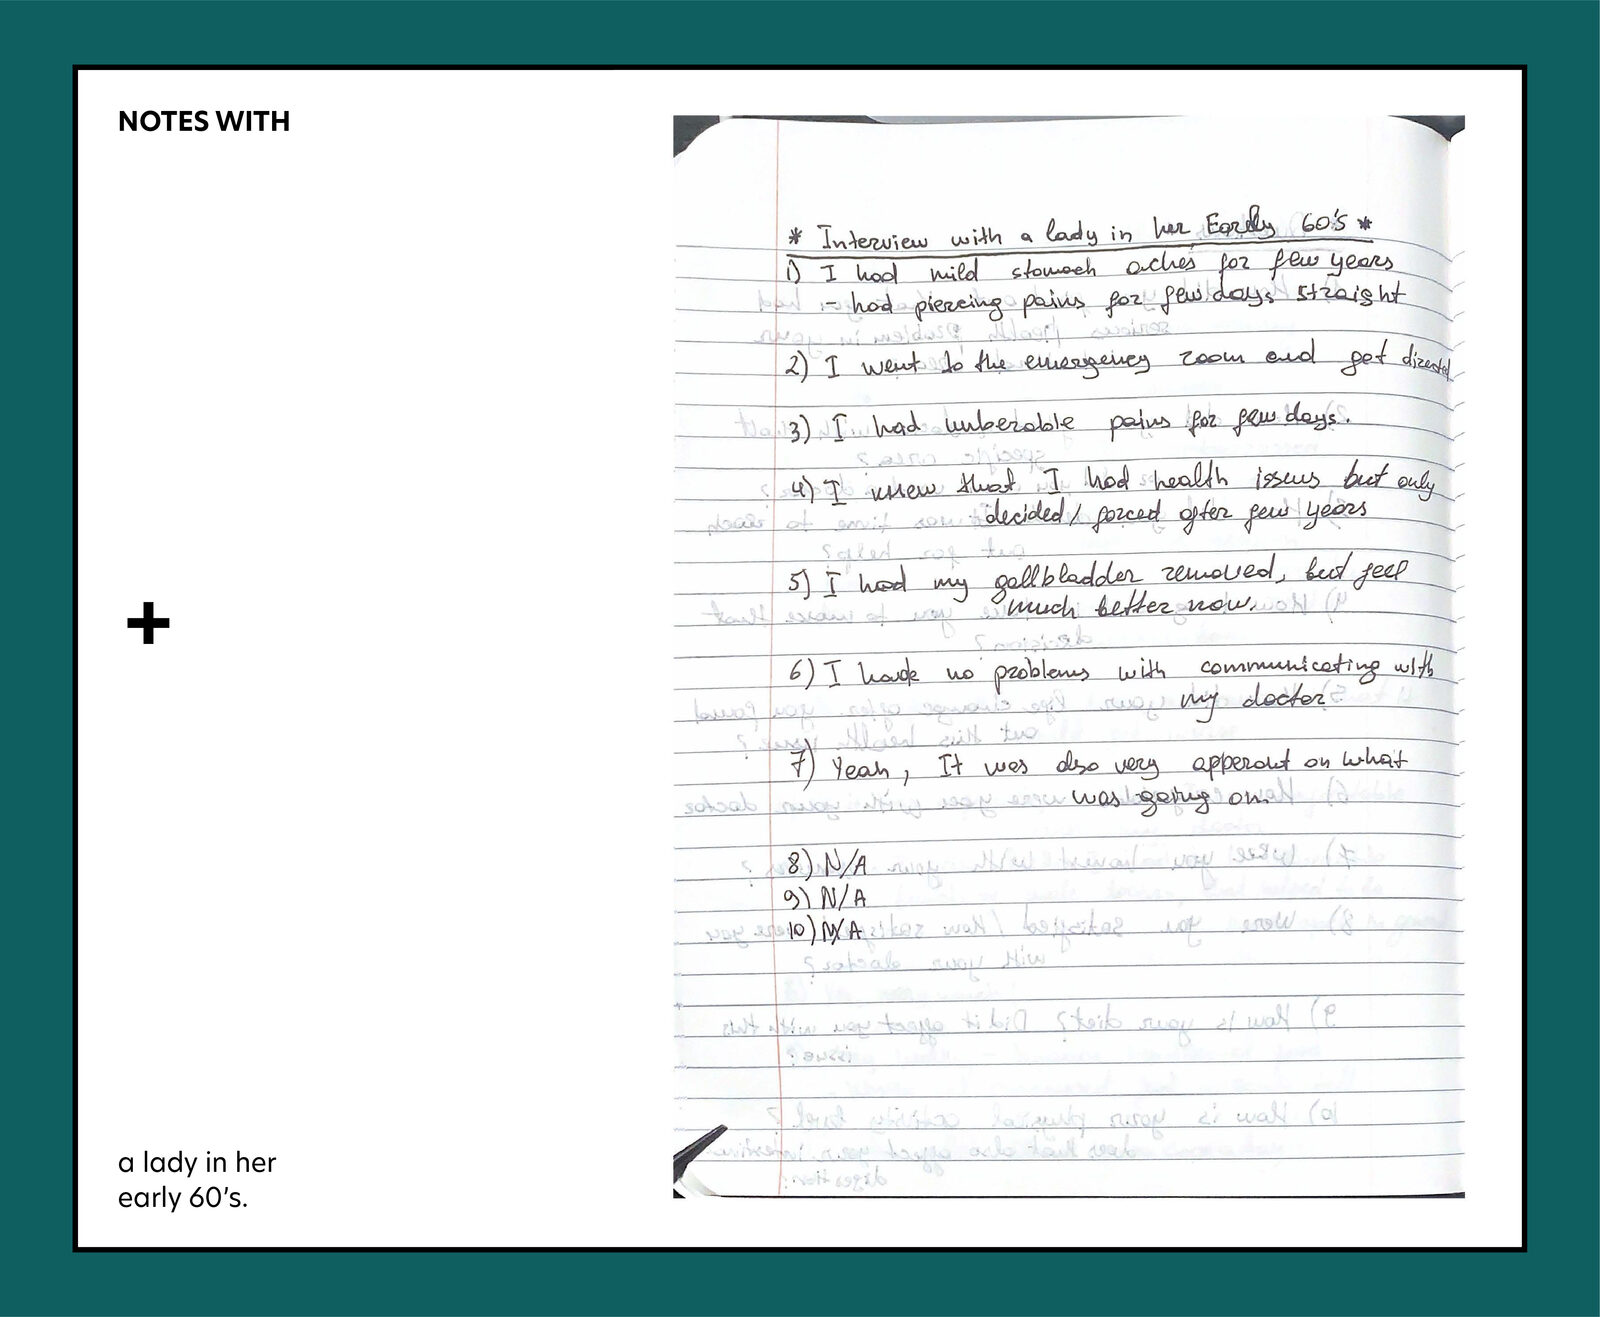 NOTES WITH
+
a lady in her
early 60's.
* Interview with a lady in her Early 60's *
1) I had mild stomach aches for few years
- had piercing pains for few days straight
2) I went to the emergency room and get
3) I had unberable pains for few days.
4) I knew that I had health issues but only
decided / forced after few years
5) I had my gallbladder removed, but feel
much better now.
6) I have no problems with communicating with
my doctor
7) Yeah, It was also very apperant on what
was going on.
8) N/A
9) N/A
10) N/A